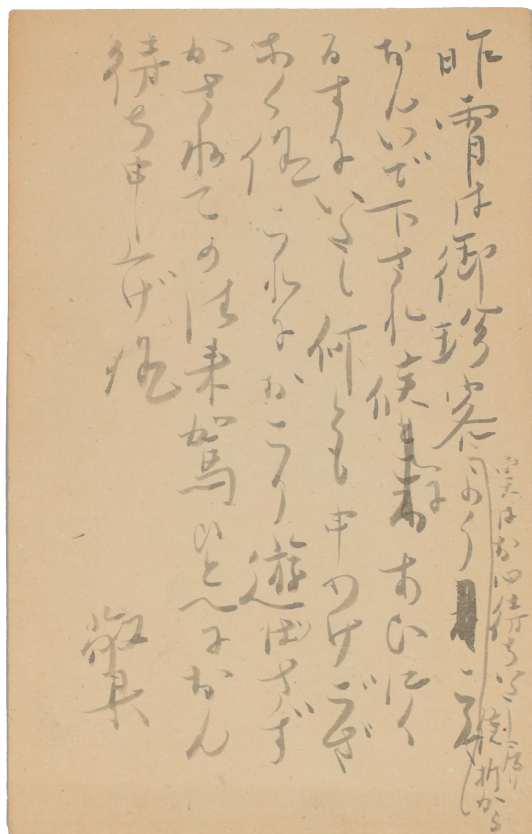 昨宵は御珍客のよう
実はお心待ちいたし居り
折から
おんいで下され候
あひにく
るすにいたし何とも申わけござ
なく候これにおこり遊ばさず
かさねての御来駕ひとへにおん
待ち申上げ候
敬具